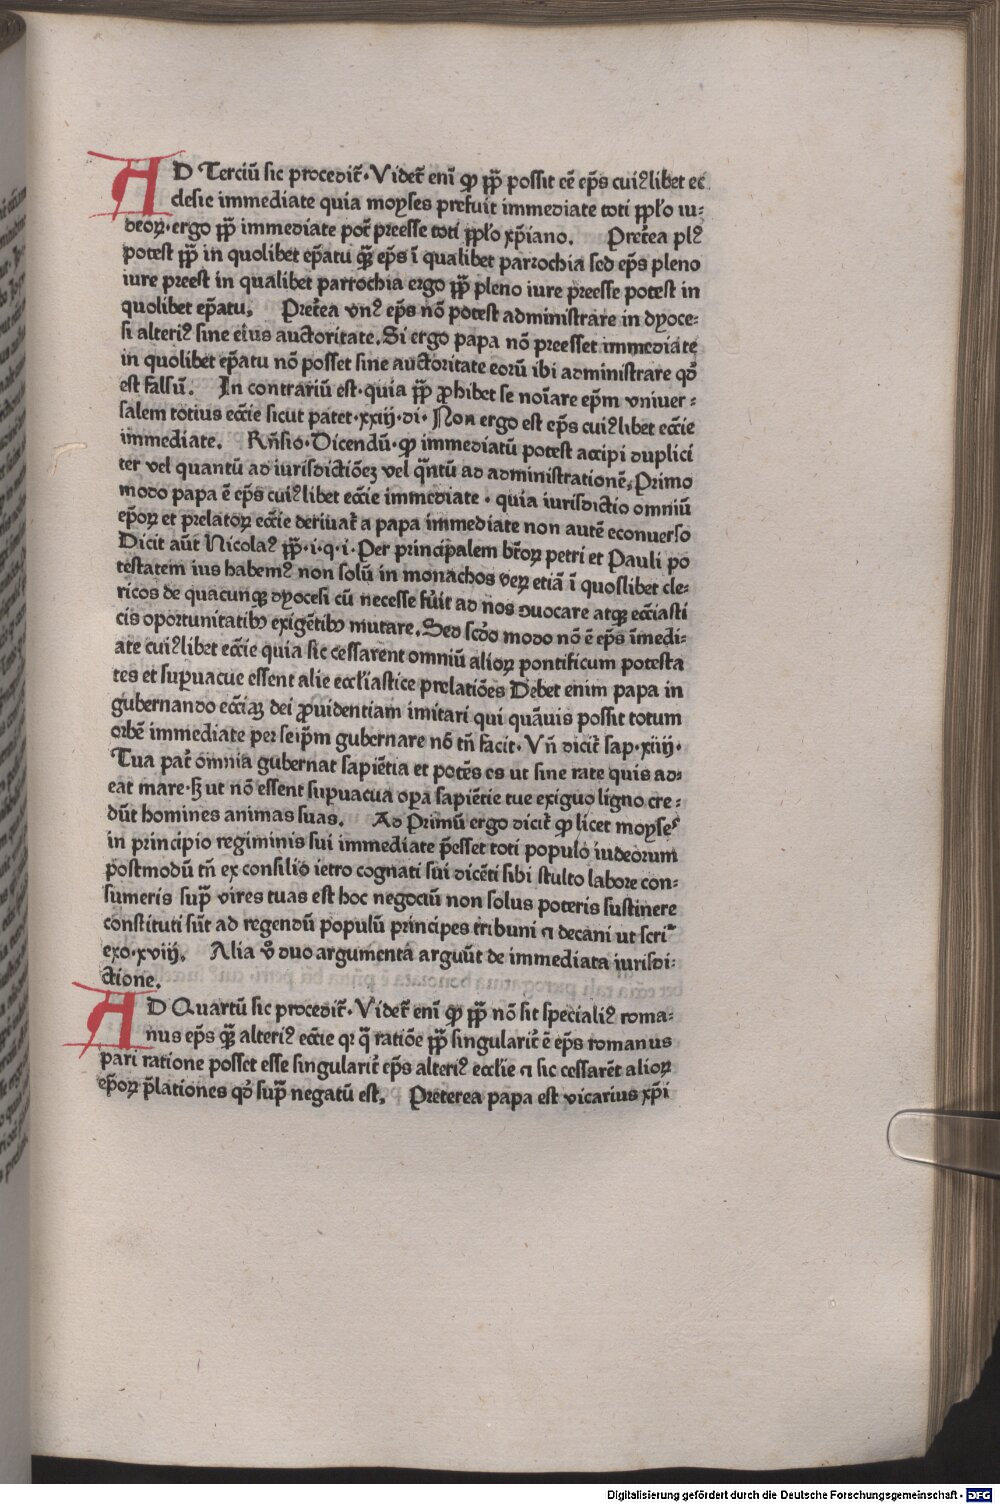 AD Terciū sic procedit᷑. Videt᷑ eni ꝙ pp̄ possit eē ep̄s cuiꝰlibet ec
clesie immediate quia moyses prefuit immediate toti pplo iu-
deoꝝ. ergo pp̄ immediate pot᷑ preesse toti pplo xp̄iano. Pret᷑ea plꝰ
potest pp̄ in quolibet ep̄atu ꝙ̄ ep̄s ī qualibet parrochia sed ep̄s pleno
iure preest in qualibet parrochia ergo pp̄ pleno iure preesse potest in
quolibet ep̄atu. Pret᷑ea vnꝰ ep̄s nō potest administrare in dyoce-
si alteriꝰ sine eius auctoritate. Si ergo papa nō preesset immediate
in quolibet ep̄atu nō posset sine auctoritate eorū ibi administrare qd̓
est falsū. In contrariū est. quia pp̄ ꝓhibet se noīare ep̄m vniuer-
salem totius ecc̄ie sicut patet. xxiij. di. Non ergo est ep̄s cuiꝰlibet ecc̄ie
immediate. Rn̄sio. Dicendū. ꝙ immediatū potest accipi duplici
ter vel quantū ad iurisdictiōeꝫ vel qn̄tū ad administrationē. Primo
modo papa ē ep̄s cuiꝰlibet ecc̄ie immediate. quia iurisdictio omniū
ep̄oꝝ et prelatoꝝ ecc̄ie deriuat᷑ a papa immediate non autē econuerso
Dicit aūt Nicolaꝰ pp̄. i. q. i. Per principalem bt̄oꝝ petri et Pauli po
testatem ius habemꝰ non solū in monachos veꝝ etiā ī quoslibet cle-
ricos de quacunqꝫ dyocesi cū necesse fu̓it ad nos duocare atqꝫ ecc̄iasti
cis oportunitatibꝰ exigētibꝰ mutare. Sed scd̓o modo nō ē ep̄s īmedi-
ate cuiꝰlibet ecc̄ie quia sic cessarent omniū alioꝝ pontificum potesta
tes et suꝑuacue essent alie eccl̄iastice prelatiōes Debet enim papa in
gubernando ecc̄iaꝫ dei ꝓuidentiam imitari qui quāuis possit totum
orbē immediate per seip̄m gubernare nō tn̄ facit. Vn̄ dicit᷑ sap. xiiij.
Tua pat᷑ omnia gubernat sapiētia et potēs es ut sine rate quis ad-
eat mare. sꝫ ut nō essent suꝑuacua oꝑa sapiētie tue exiguo ligno cre-
dūt homines animas suas. Ad Primū ergo dicit᷑ ꝙ licet moyses
in principio regiminis sui immediate p̄esset toti populo iudeorum
postmodū tn̄ ex consilio ietro cognati sui dicēti sibi stulto labore con-
sumeris sup̄ vires tuas est hoc negociū non solus poteris sustinere
constituti sūt ad regendū populū principes tribuni ⁊ decani ut scri
exo. xviij. Alia v̓o duo argumenta arguūt de immediata iurisdi-
ctione.
AD Quartū sic procedit᷑. Videt᷑ eni ꝙ pp̄ nō sit specialiꝰ roma-
nus ep̄s ꝙ̄ alteriꝰ ecc̄ie qꝛ q̄ ratiōe pp̄ singularit᷑ ē ep̄s romanus
pari ratione posset esse singularit᷑ ep̄s alteriꝰ ecclie ⁊ sic cessarēt alioꝝ
ep̄oꝝ p̄lationes qd̓ sup̄ negatū est. Preterea papa est vicarius xp̄i
Digitalisierung gefördert durch die Deutsche Forschungsgemeinschaft - DFG